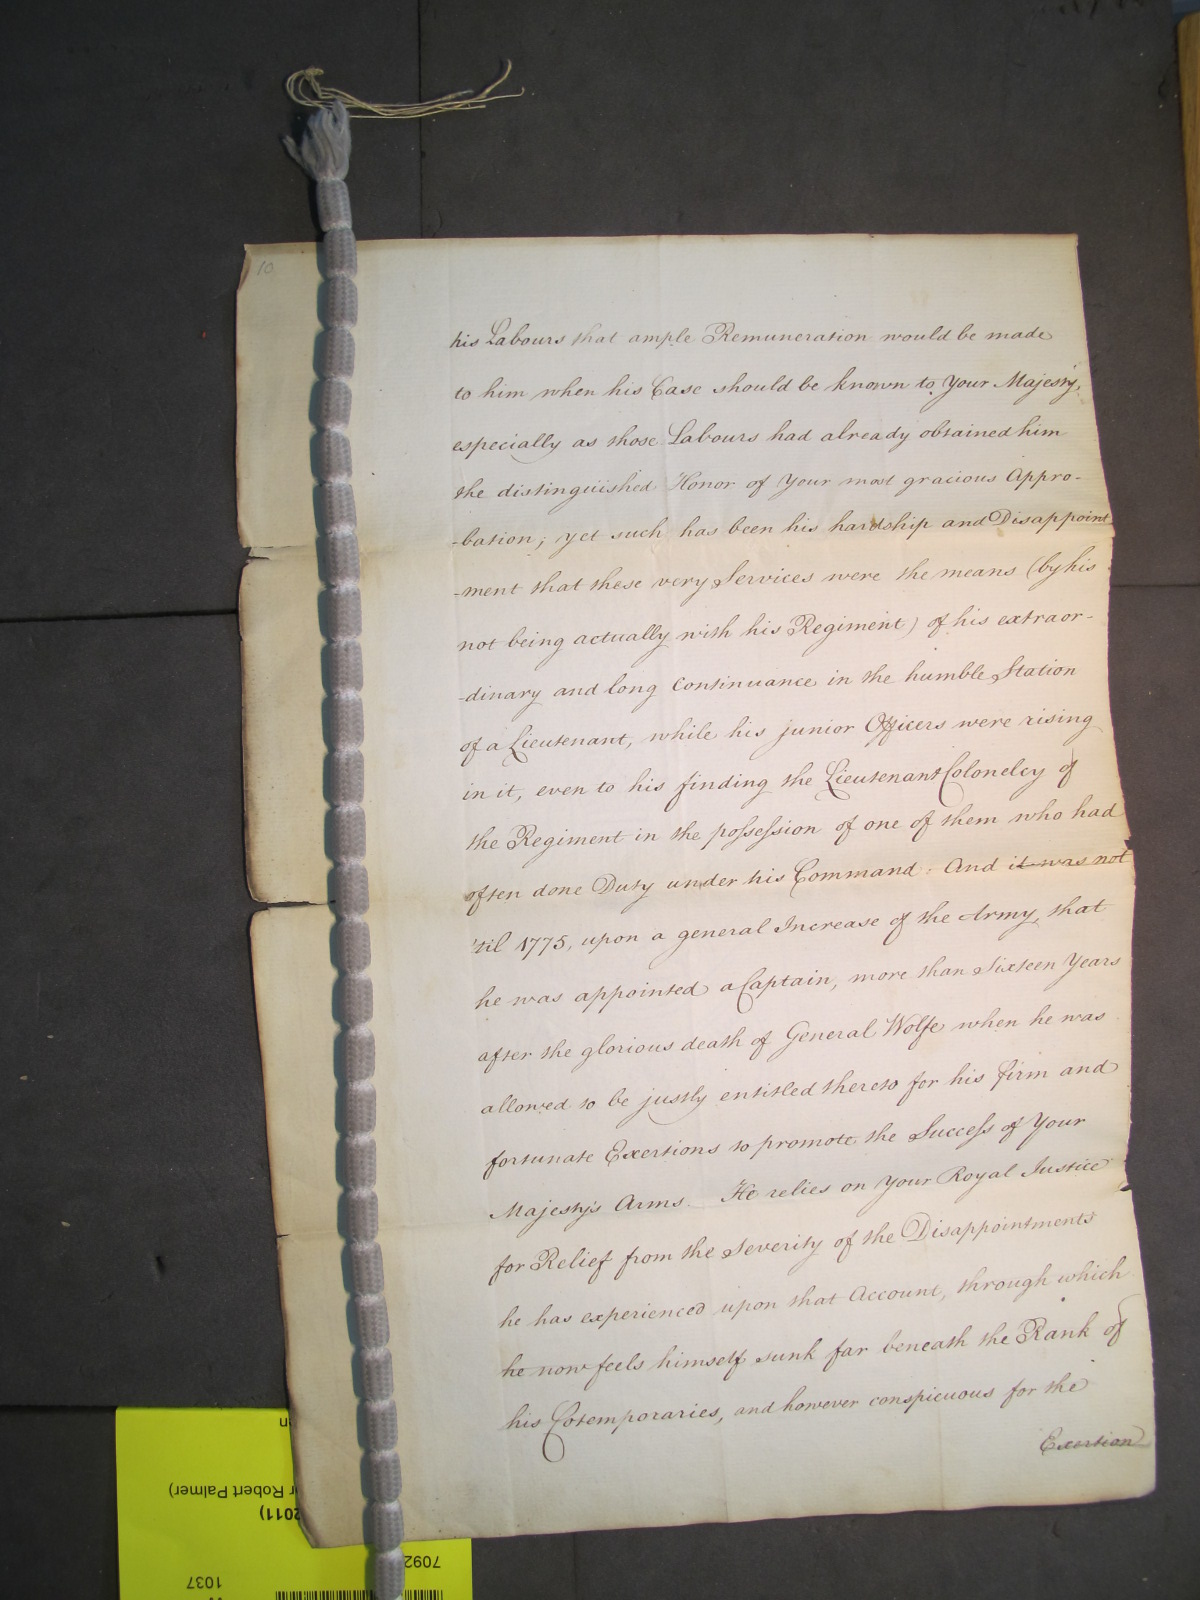 10
his Labours that ample Remuneration would be made
to him when his Case should be known to Your Majesty,
especially as those Labours had already obtained him
the distinguished Honor of Your most gracious Appro-
-bation; yet such has been his hardship and Disappoint
-ment that these very Services were the means (by his
not being actually with his Regiment) of his extraor-
-dinary and long Continuance in the humble Station
of a Lieutenant, while his junior Officers were rising
in it, even to his finding the Lieutenant Colonelcy of
the Regiment in the possession of one of them who had
often done Duty under his Command: And it was not
'til 1775, upon a general Increase of the Army, that
he was appointed a Captain, more than Sixteen Years
after the glorious death of General Wolfe when he was
allowed to be justly entitled thereto for his firm and
fortunate Exertions to promote the Success of Your
Majesty's Arms. He relies on Your Royal Justice
for Relief from the Severity of the Disappointments
he has experienced upon that Account, through which
he now feels himself sunk far beneath the Rank of
his Cotemporaries, and however conspicuous for the
Exertion
r Robert Palmer)
2011)
7092
1037